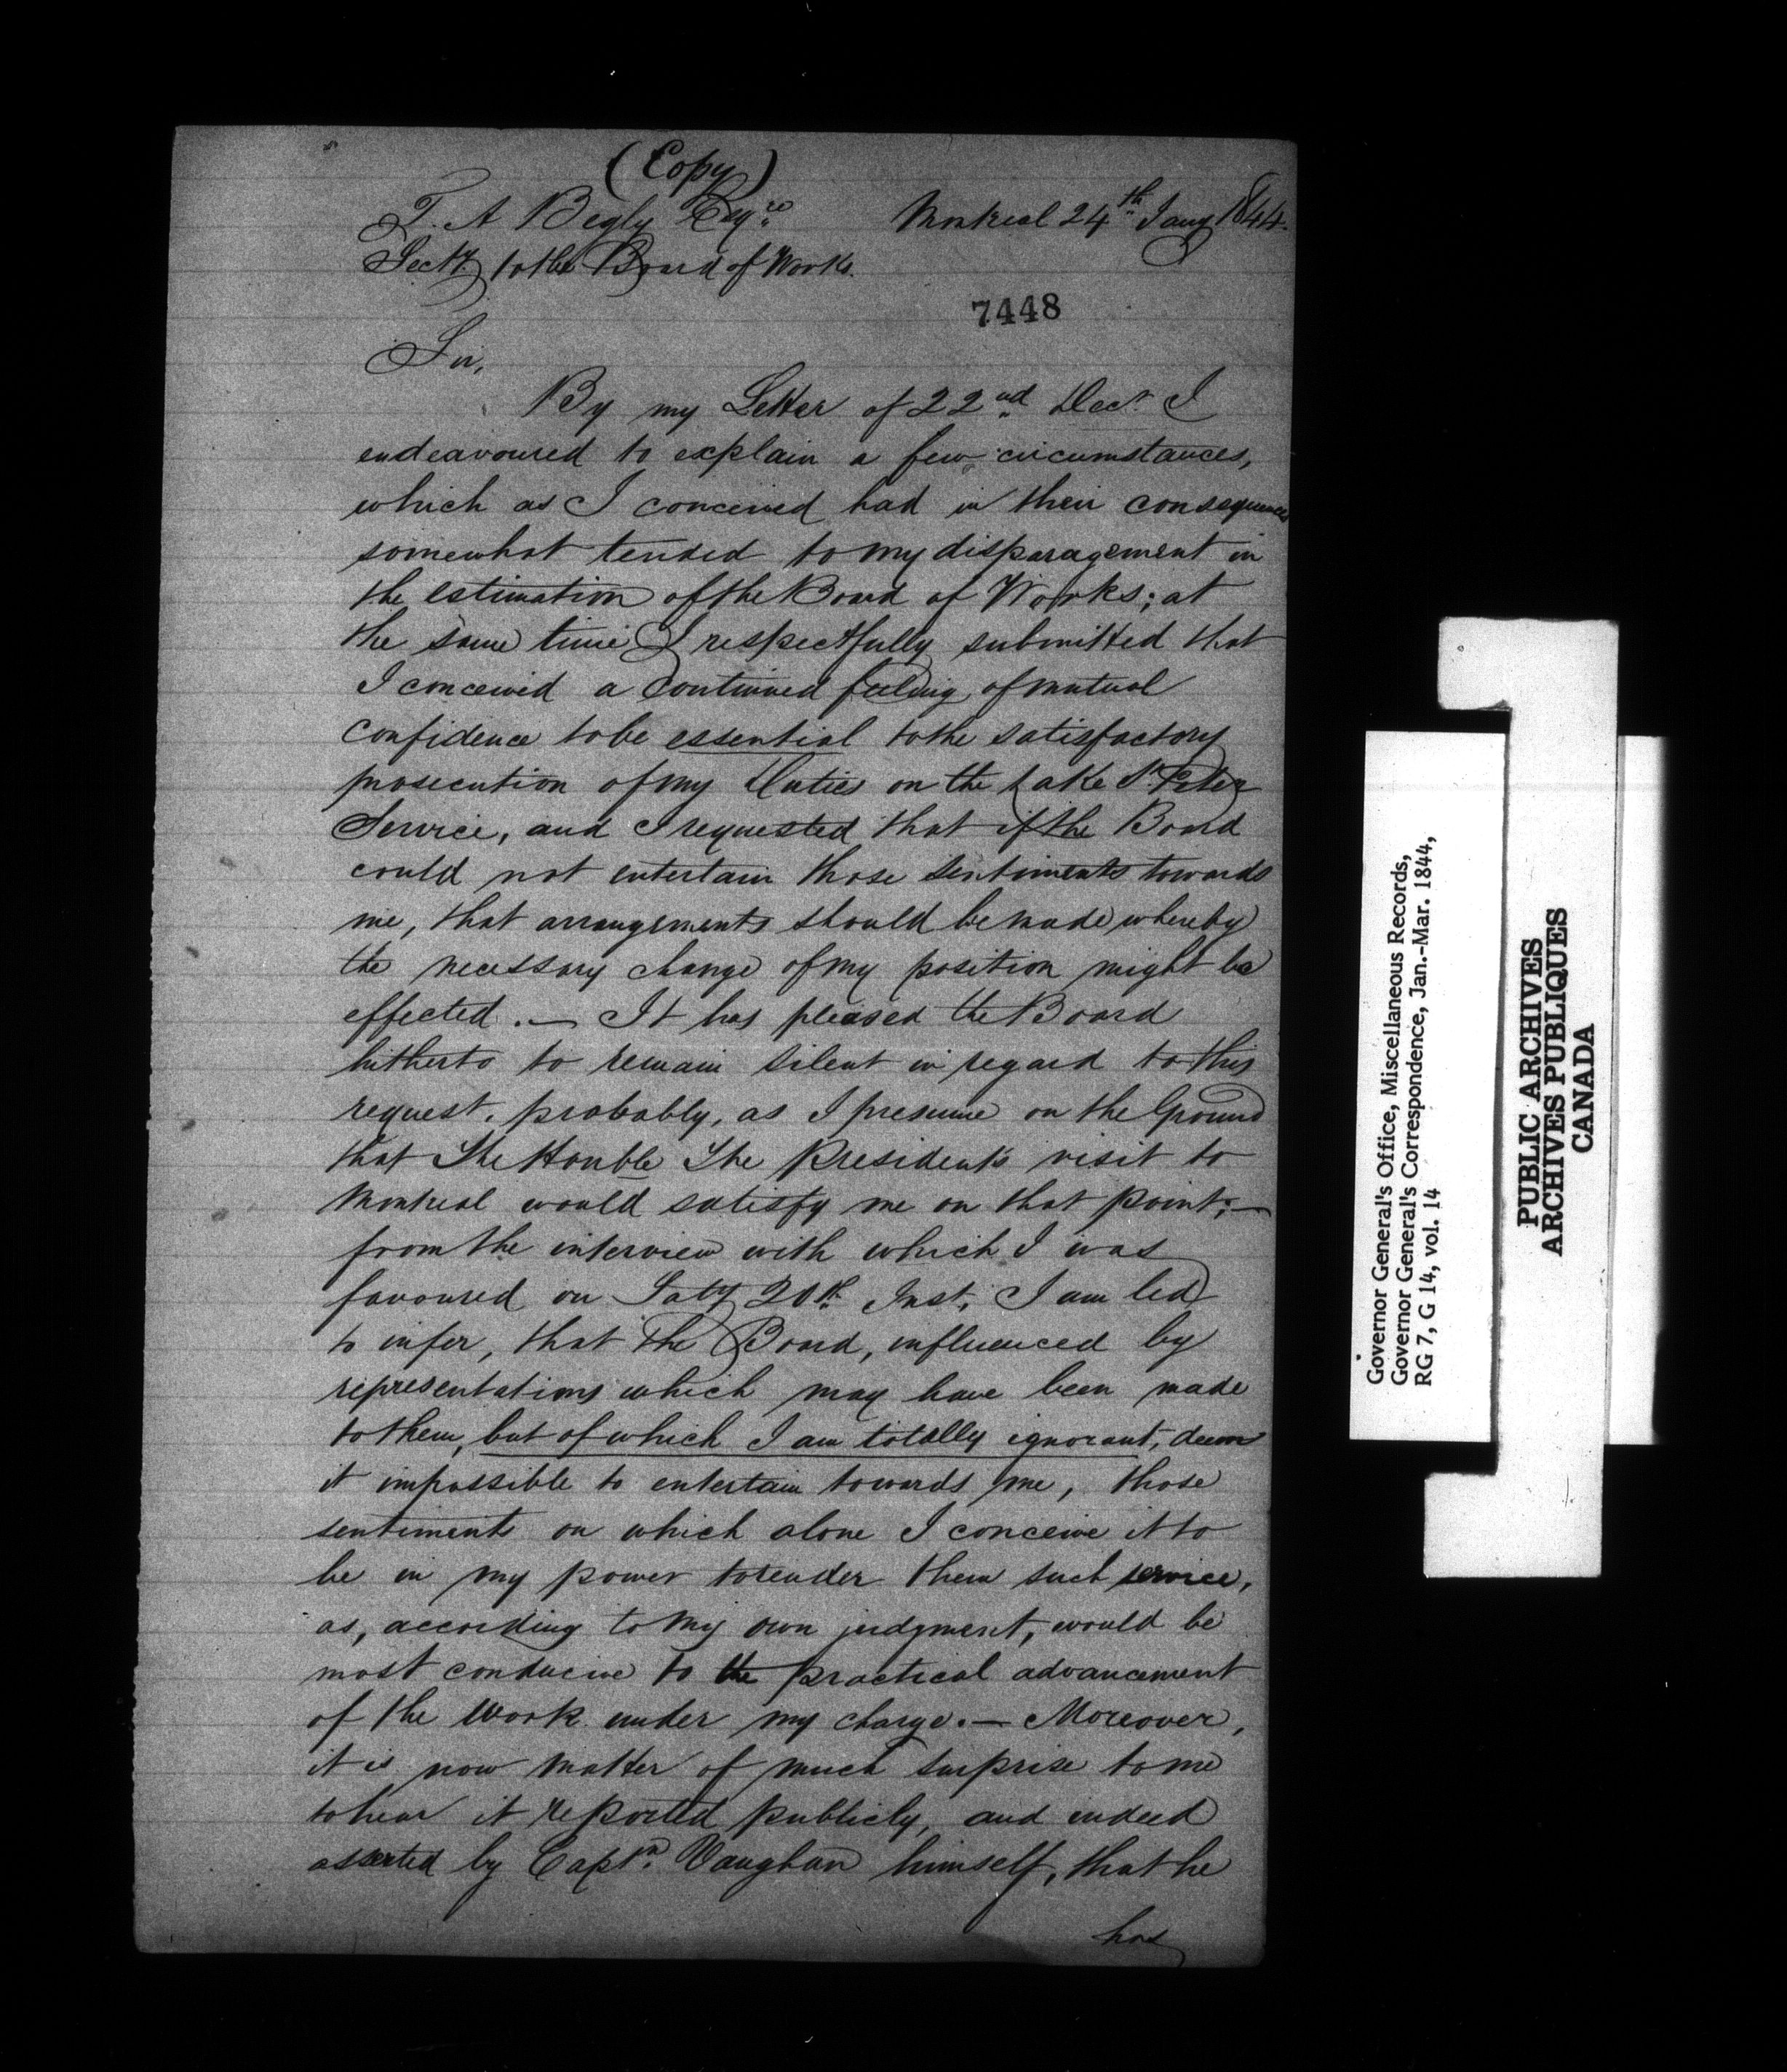 (Copy)
T. A Begly Esqre
Montreal 24th Jany 1844.
Secty. to the Board of Works.
7448
Sir,
By my Letter of 22nd Decr. I
endeavoured to explain a few circumstances,
which as I conceived had in their consequences
somewhat tended to my disparagement in
the estimation of the Board of Works; at
the same time I respectfully submitted that
I conceived a continued feeling of mutual
confidence to be essential to the satisfactory
prosecution of my Duties on the Lake St. Peter
Service, and I requested that if the Board
could not entertain those sentiments towards
me, that arrangements should be made whereby
the necessary change of my position might be
effected. — It has pleased the Board
hitherto to remain silent in regard to this
request, probably, as I presume on the Ground
that The Honble The President's visit to
Montreal would satisfy me on that point; —
from the interview with which I was
favoured on Saty 20th. Inst, I am led
to infer, that the Board, influenced by
representations which may have been made
to them, but of which I am totally ignorant, deem
it impossible to entertain towards me, those
sentiments on which alone I conceive it to
be in my power to render them such service,
as, according to my own judgment, would be
most conducive to the practical advancement
of the Work under my charge. — Moreover,
it is now matter of much surprise to me
to hear it reported publicly, and indeed
asserted by Captn. Vaughan himself, that he
has
Governor General's Office, Miscellaneous Records,
Governor General's Correspondence, Jan.-Mar. 1844,
RG 7, G 14, vol. 14
PUBLIC ARCHIVES
ARCHIVES PUBLIQUES
CANADA